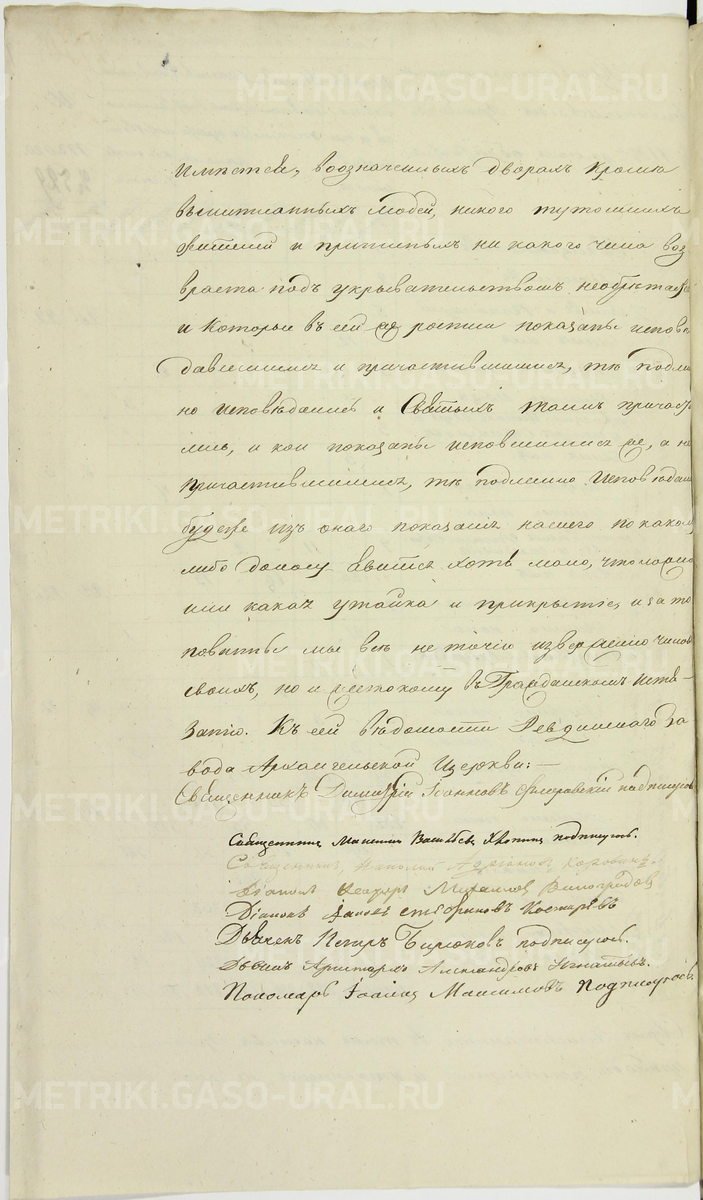 METRIKI.GASO-URAL.RU
имѣется, в означенныхъ дворахъ кромѣ
вышиписанныхъ людей, никого тутошнихъ
жителей и пришлыхъ ни какого чина воз
враста подъ укрывательствомъ необрѣтается
и которые въ сей же росписи показаны исповѣ
давшимися и причастившимися, тѣ подлин
но исповѣдались и Святыхъ таинъ причасти
лись, и кои показаны исповедавшимися же, а не
причастившимися, тѣ подлинно исповѣдались
будеже изъ онаго показанія нашего по какому
либо доносу явится хотѣ мало, что ложно
или какая утайка и прикрытіе, и за то
повинны мы всѣ не точію изверженію чиновъ
своихъ, но и жестокому въ Гражданскомъ истя-
занію. Къ сей вѣдомости Ревдинского За
вода Архангельской Церкви:—
Священникъ Димитрій Іоанновъ Флоровскій подписуюсь
Священникъ Максимъ Васильевъ подписуюсь.
Священникъ Николай Адріановъ Коровинъ.
Діаконъ Феодоръ Михайловъ Виноградовъ
Діаконъ Іаковъ Стефановъ Косторевъ
Дьячекъ Петръ Бирюковъ подписуюсь.
Дьячекъ Аристархъ Александровъ Игнатьевъ.
Пономарь Іоаннъ Максимовъ подписуюсь.